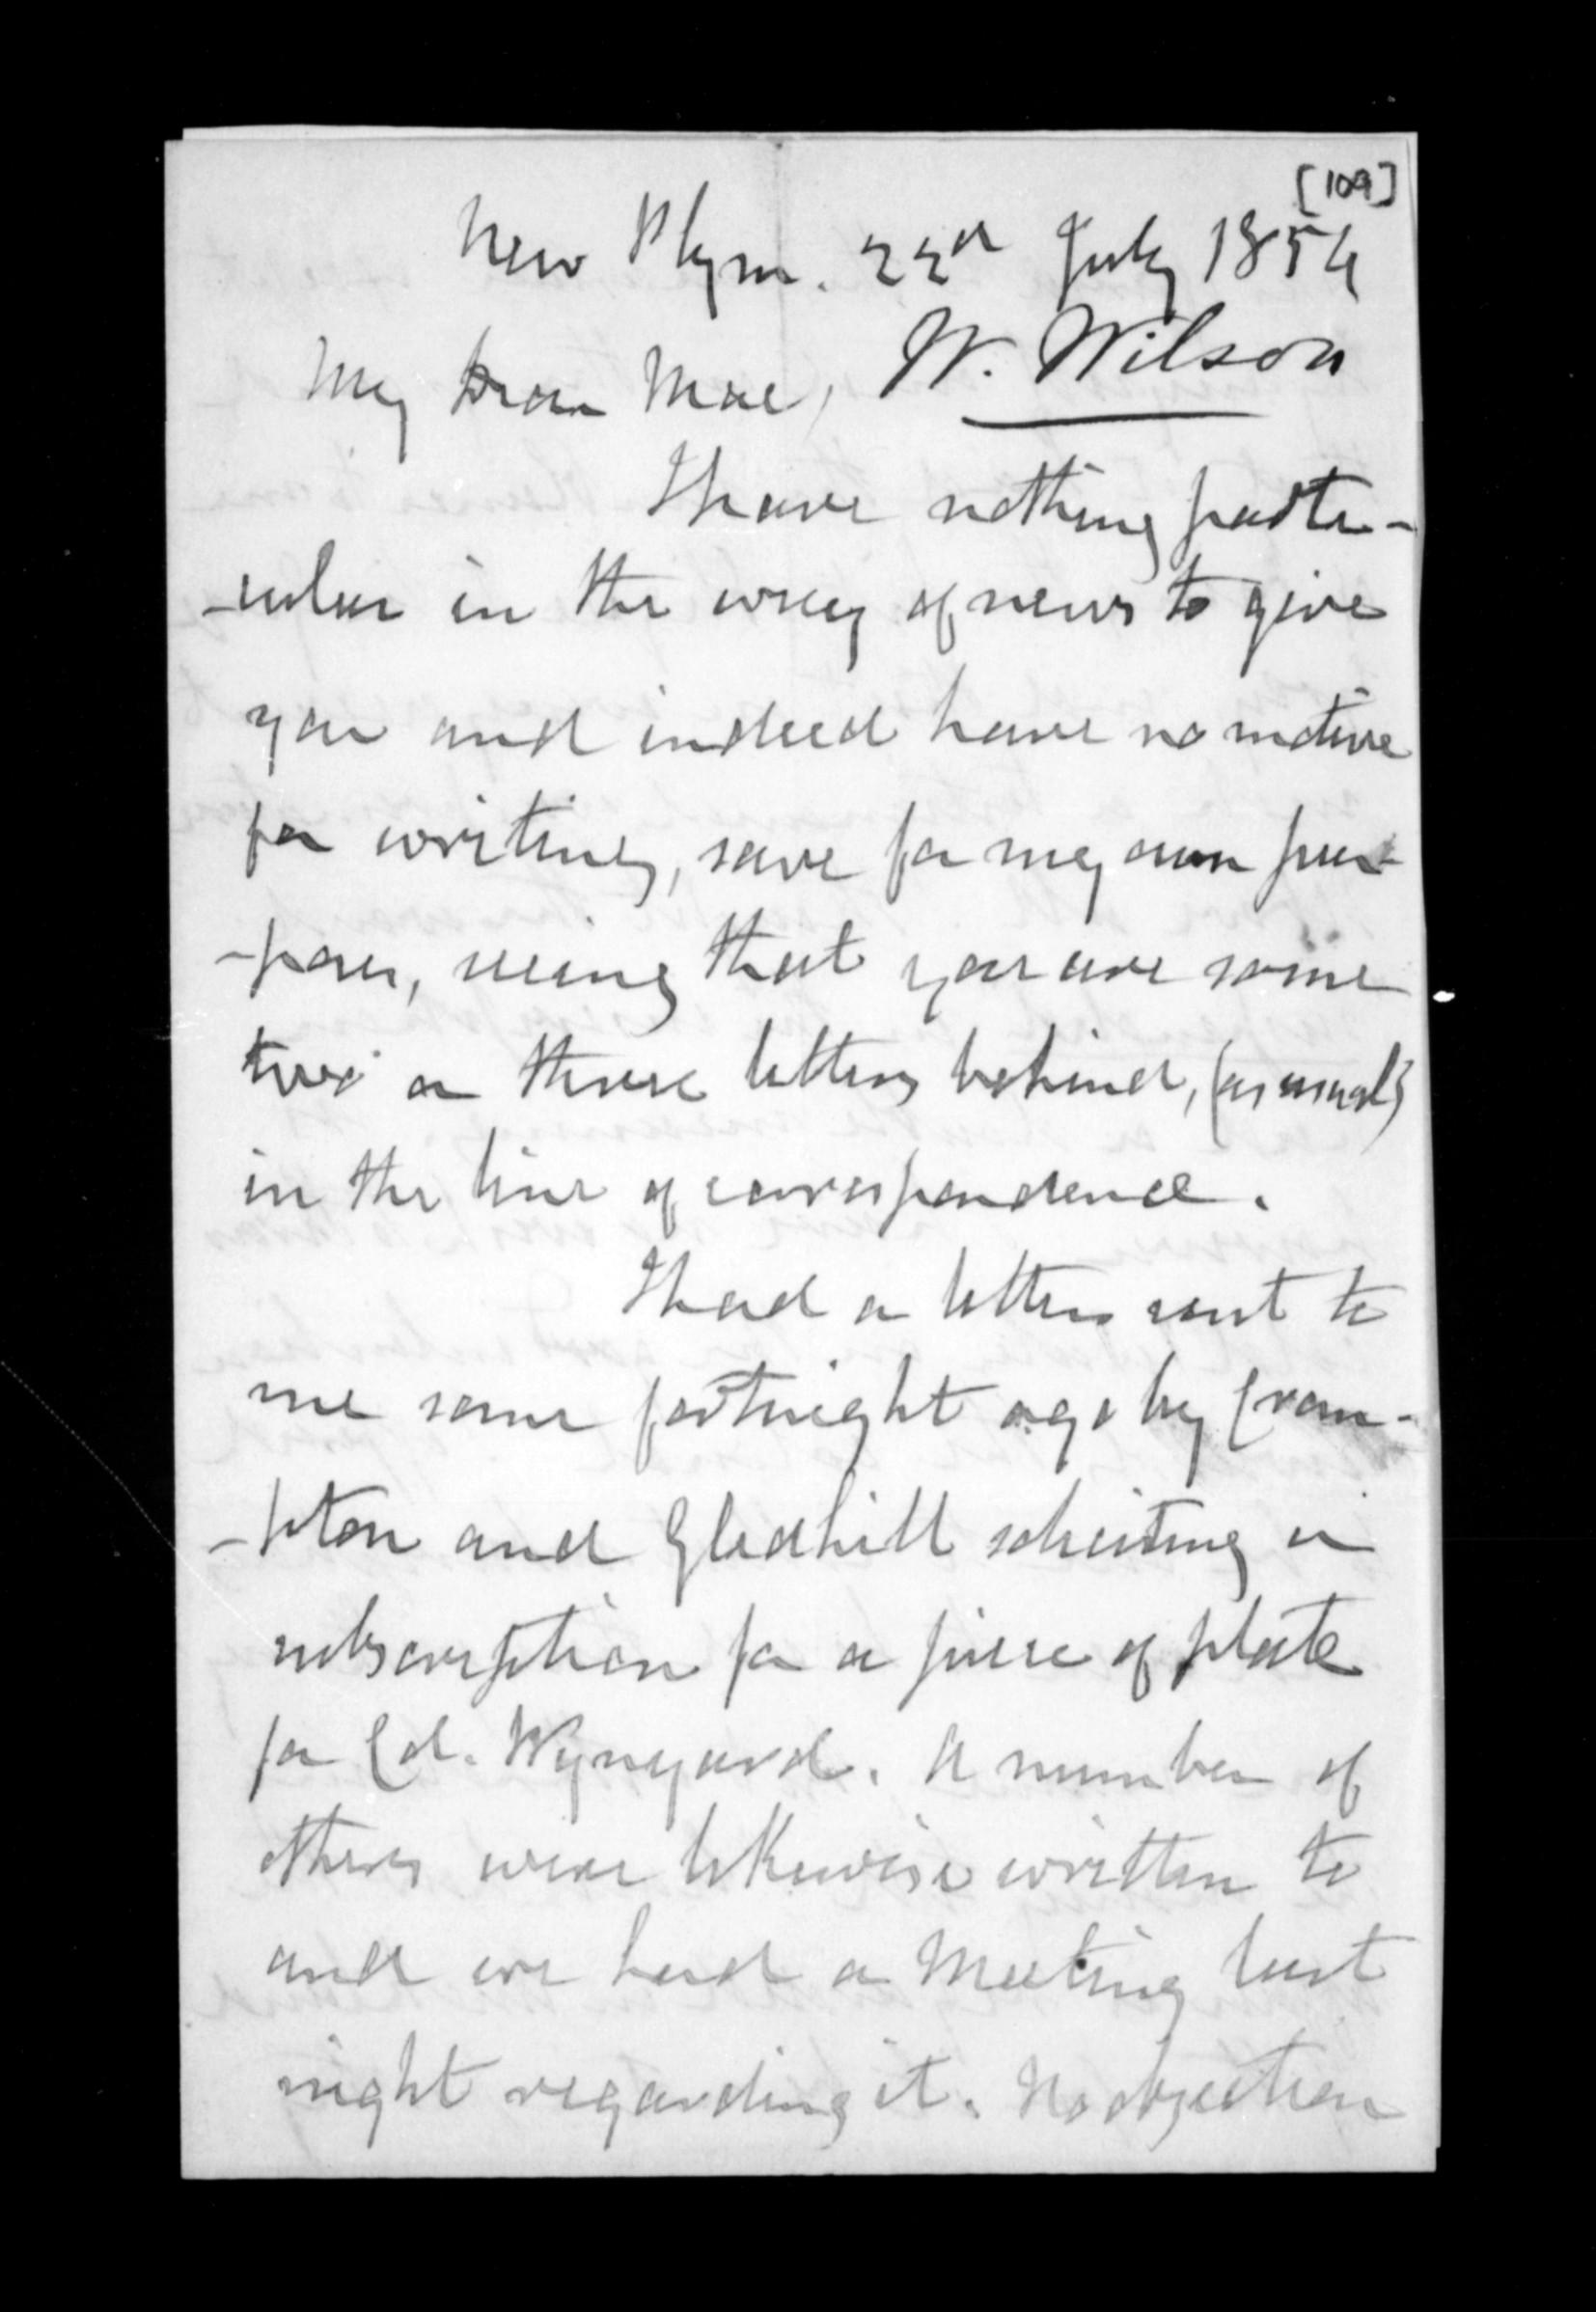 [109]
New Plym. 22d July 1854
W. Wilson
My Dear Mac,
I have nothing parti-
-cular in the way of news to give
you and indeed have no motive
for writing, save for my own pur-
-poses, seeing that you are some
two or three letters behind, (as usual)
in the line of correspondence.
I had a letter sent to
me some fortnight ago by Cram-
-pton and Gledhill soliciting a
subscription for a piece of plate
for Col. Wynyard. A number of
others were likewise written to
and we had a Meeting last
night regarding it. No objection